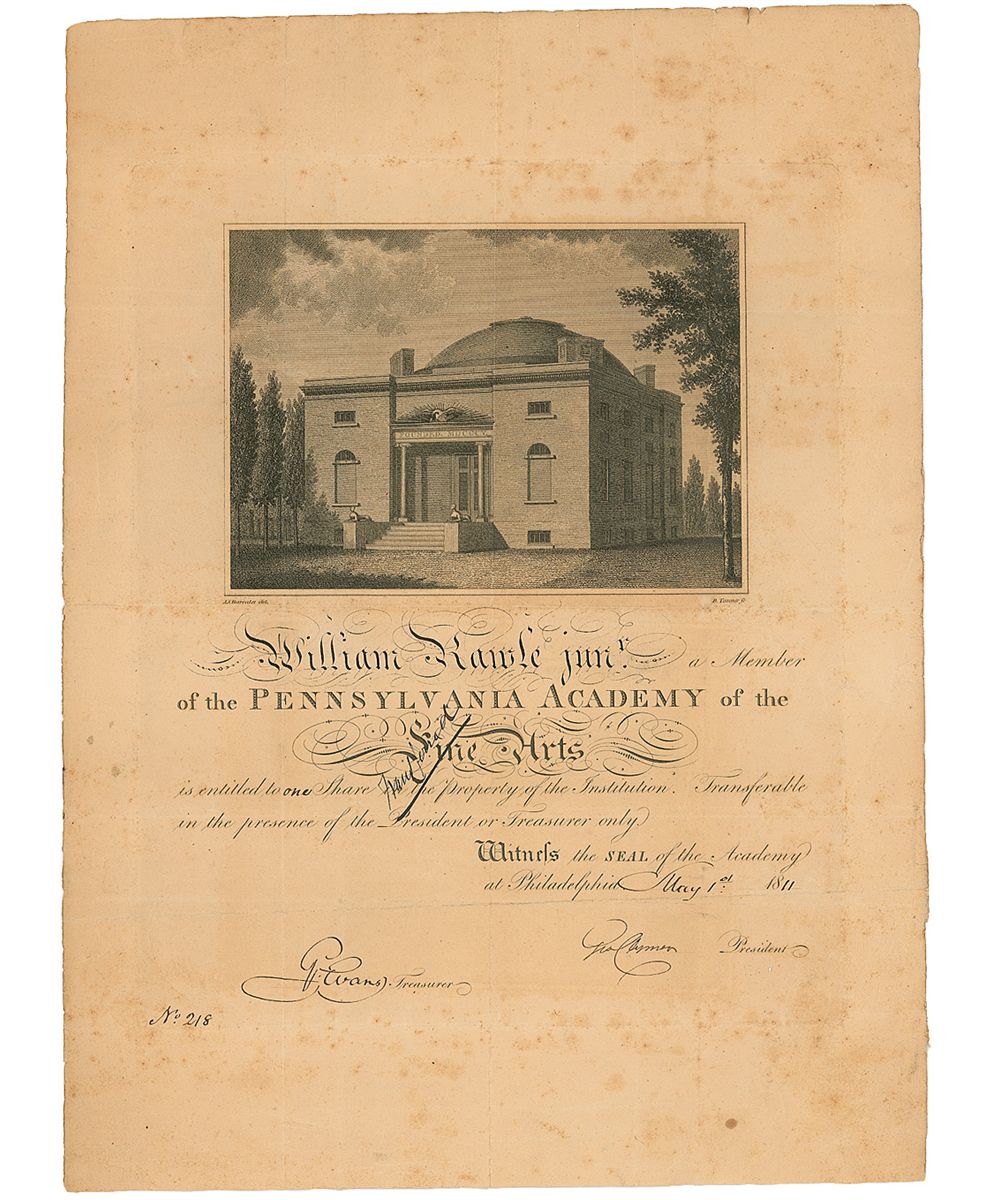 FOUNDED MDCCCV.
J.J. Barralet del.
B. Tanner sc.
William Rawle junr. a Member
of the PENNSYLVANIA ACADEMY of the
Fine Arts
Transferred
is entitled to one Share in the Property of the Institution. Transferable
in the presence of the President or Treasurer only
Witneſs the SEAL of the Academy
at Philadelphia May 1st. 1811
Geo Clymer President
G. Evans. Treasurer
No. 218